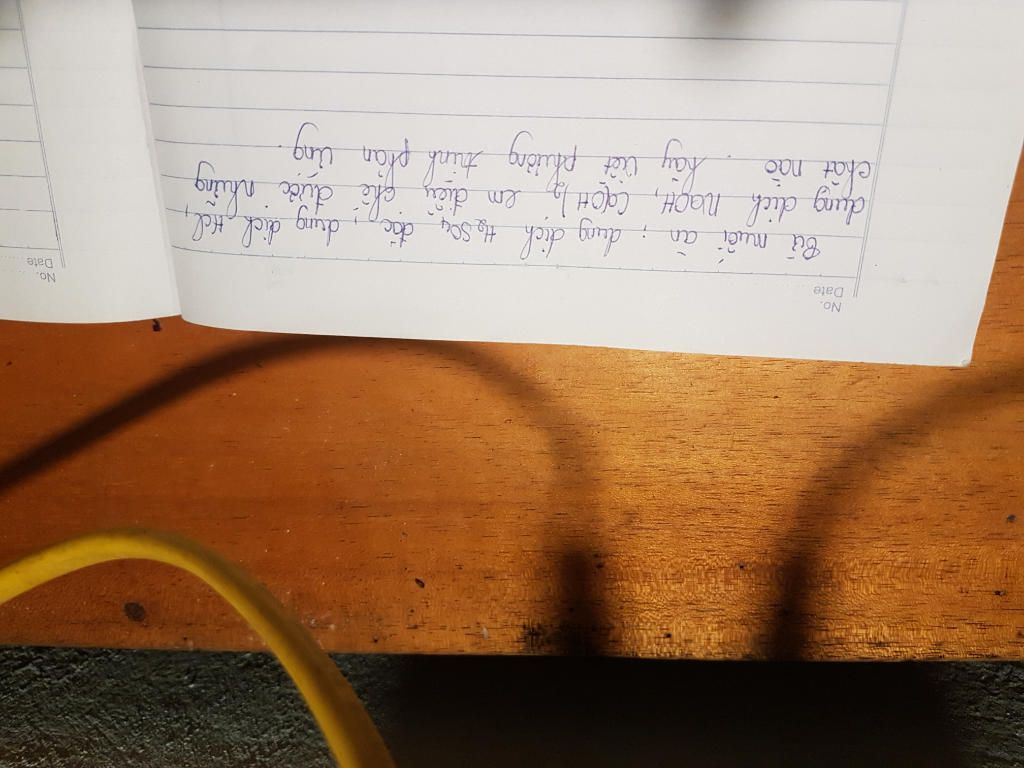 No.
Date
Từ muối ăn ; dung dịch H₂SO₄ đặc, dung dịch HCl,
dung dịch NaOH, Ca(OH)₂ em điều chế được những
chất nào . hãy viết phương trình phản ứng .
No.
Date